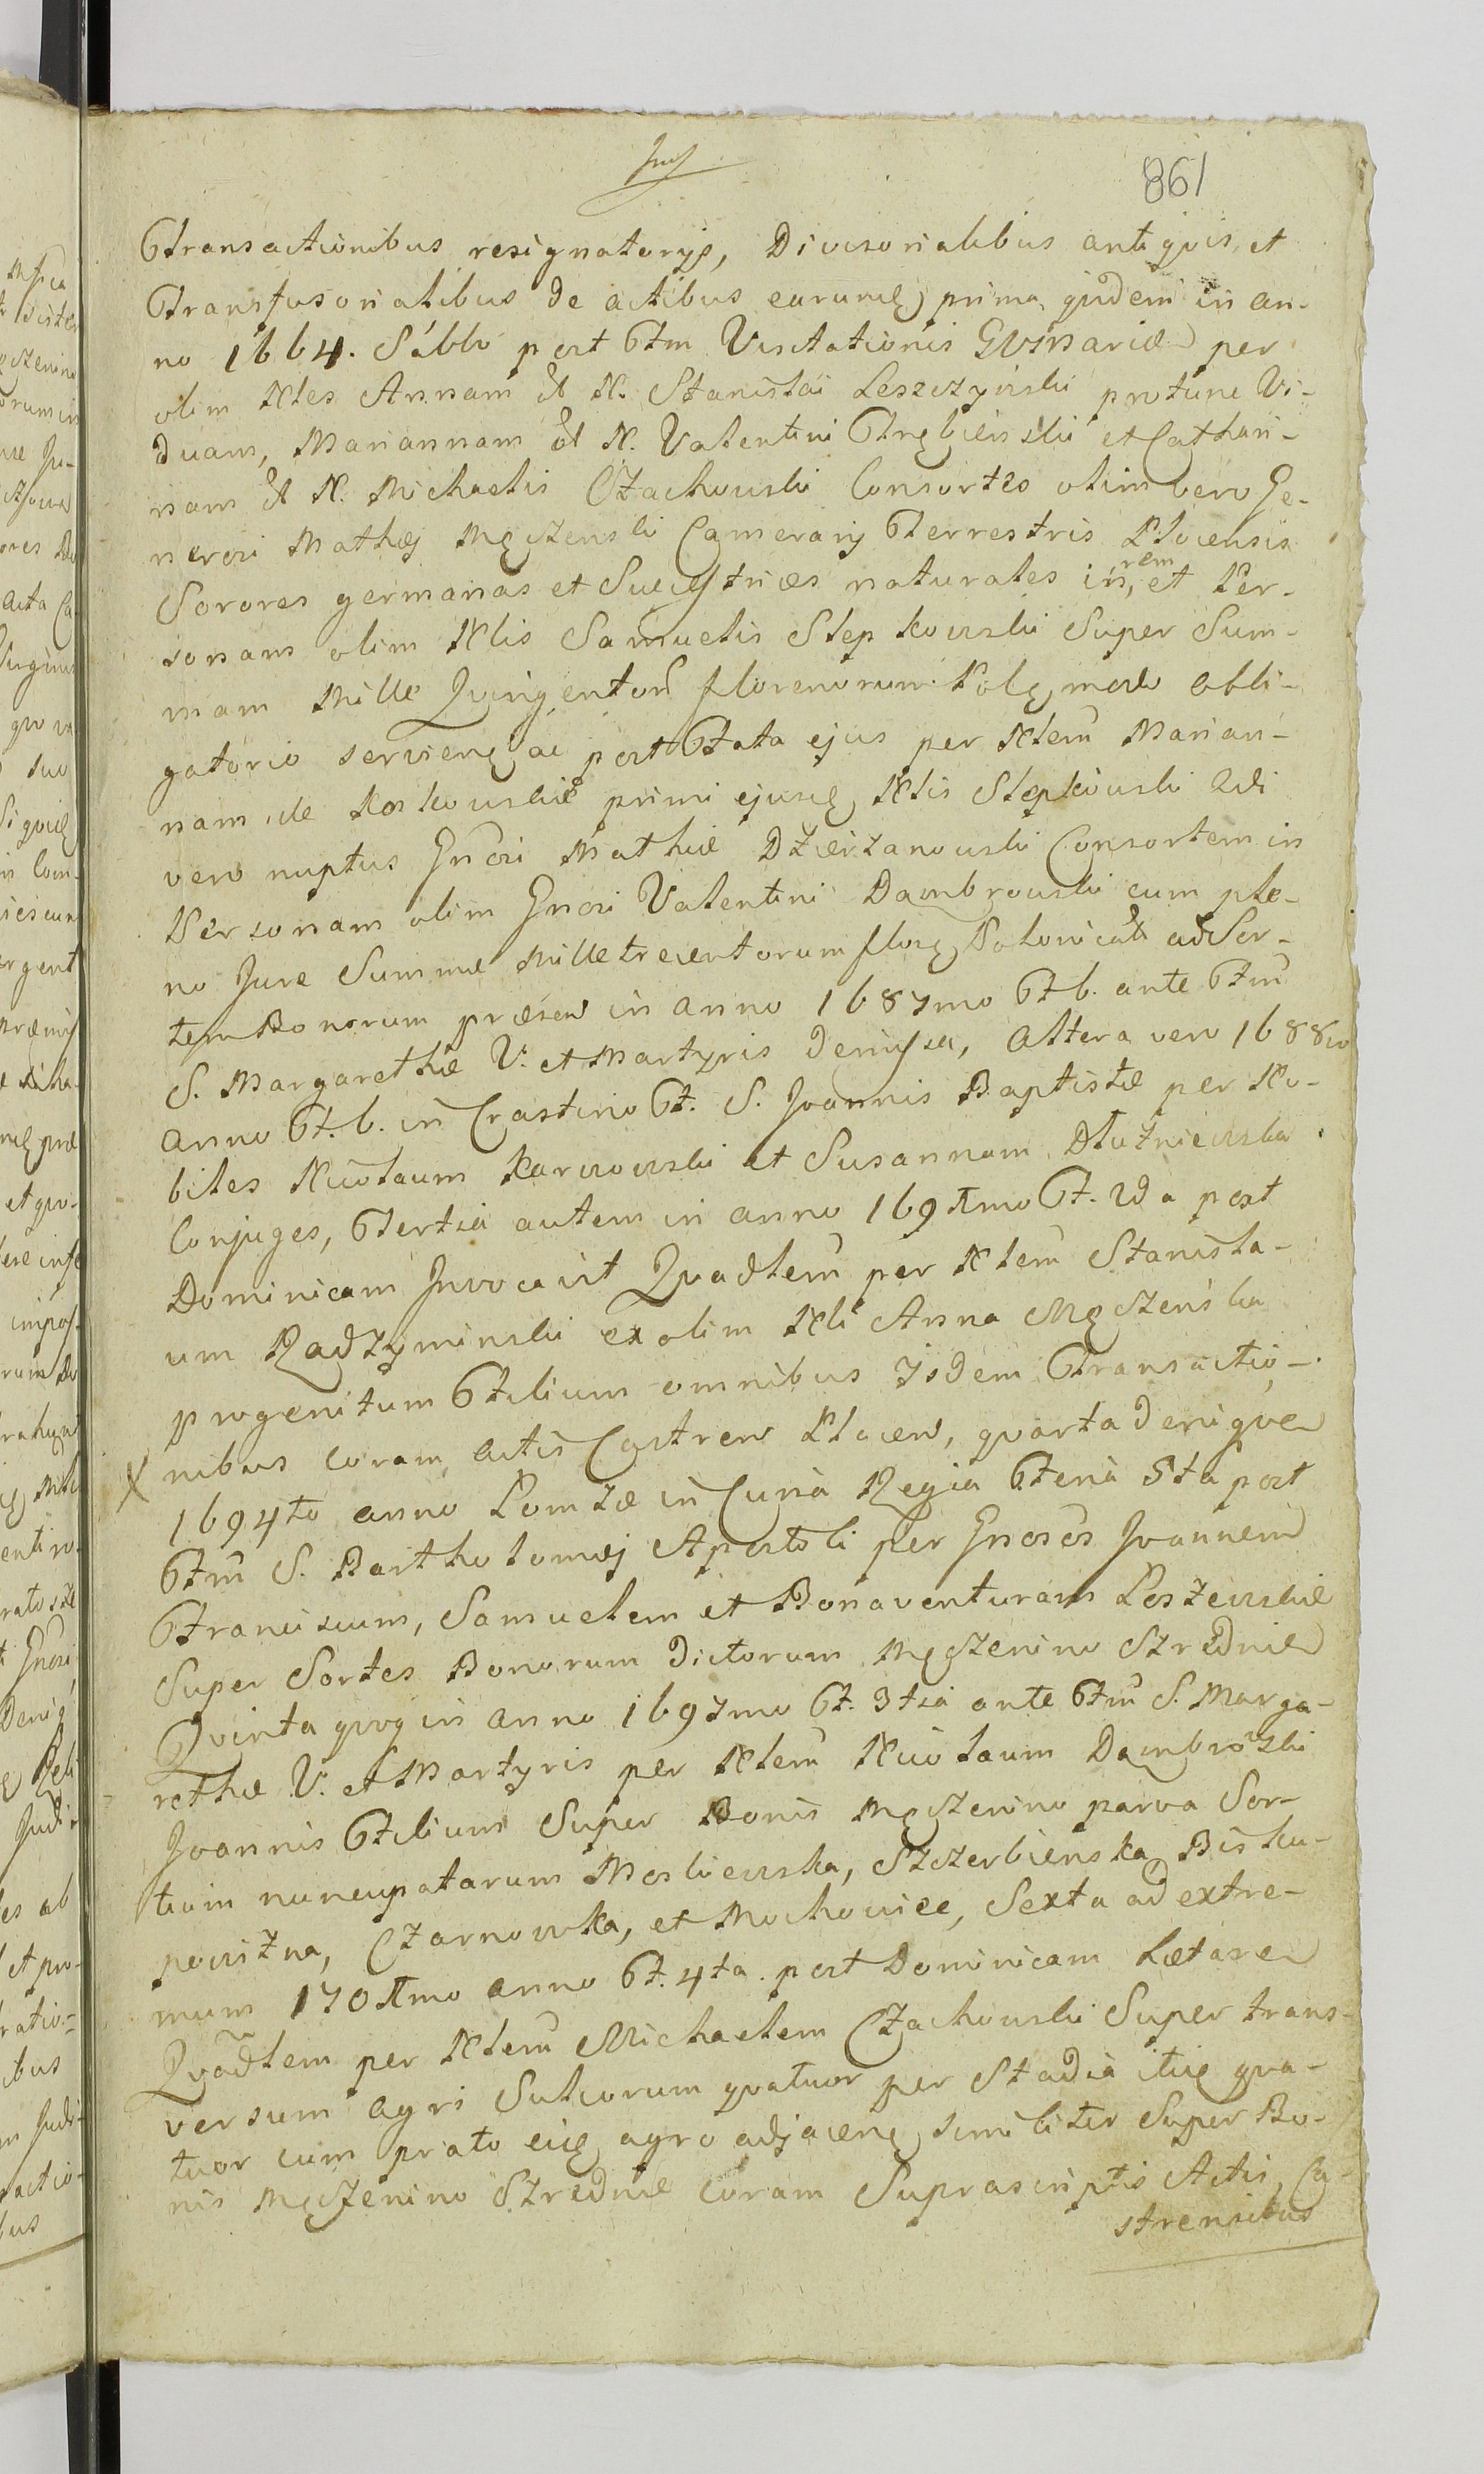 861
Transactionibus resignatorys, Divisorialibus antiqvis, et
Transfusorialibus de actibus earumq prima qvidem in an-
no 1664. Sabbo post Ftm Visitationis GVMariæ per
olim Nles Annam N. Stanislai Leszczynski protunc Vi-
duam, Mariannam N. Valentini Trębienski et Cathari-
nam N. Michaelis Czachowski Consortes olim vero Ge-
nerosi Mathæj Męczenski Camerarij Terrestris Plocensis
Sorores germanas et Successtrices naturales in rem, et Per-
sonam olim Nlis Samuelis Slepkowski Super Sum-
mam Mille Qvingentor florenorum Polę modo obli-
gatorio servienę ac post Fata ejus per Nlem Marian-
nam de Koskowskie primi ejusę Nlis Slepkowski 2di
vero nuptus Gnosi Mathiæ Dzierzanowski Consortem in
Personam olim Gnosi Valentini Dambrowski cum ple-
no Jure Summæ Mille trecentorum florę Polonicali ad Sor-
tem Bonorum præsen in anno 1687mo F. 6. ante Ftm
S. Margarethæ V. et Martyris demissa, Altera vero 1688vo
anno F. 6. in Crastino F. S. Joannis Baptistæ per No-
biles Nicolaum Karwowski et Susannam Dłużniewska
Conjuges, Tertia autem in anno 1691mo F. 2da post
Dominicam Invocavit Qvadlem per Nlem Stanisla-
um Radzyminski ex olim Nli Anna Męczenska
progenitum Filium omnibus Isdem Transactio-
nibus coram Actis Castren Plocen, qvarta deniqve
1694to anno Lomzæ in Curia Regia Feria 5ta post
Ftm S. Bartholomæj Apostoli per Gnosos Joannem
Franciscum, Samuelem et Bonaventuram Loszewskie
Super Sortes Bonorum dictorum Męczenino Szrednie
Qvinta qvoq in anno 1697mo F. 3tia ante Ftm S. Marga-
rethæ V. et Martyris per Nlem Nicolaum Dambrowski
Joannis Filium Super Bonis Męczenino parva Sor-
tium nuncupatarum Moskiewska, Szczerbienska, Bisku-
powizna, Czarnowka, et Mochowice, Sexta ad extre-
mum 1701mo anno F. 4ta. post Dominicam Lætare
Qvadlem per Nlem Michaelem Czachowski Super trans-
versum agri Sulcorum qvatuor per Stadia itię qva-
tuor cum prato eię agro adjacenę similiter Super Bo-
nis Męczenino Szrednie coram Suprascriptis Actis, Ca-
strensibus